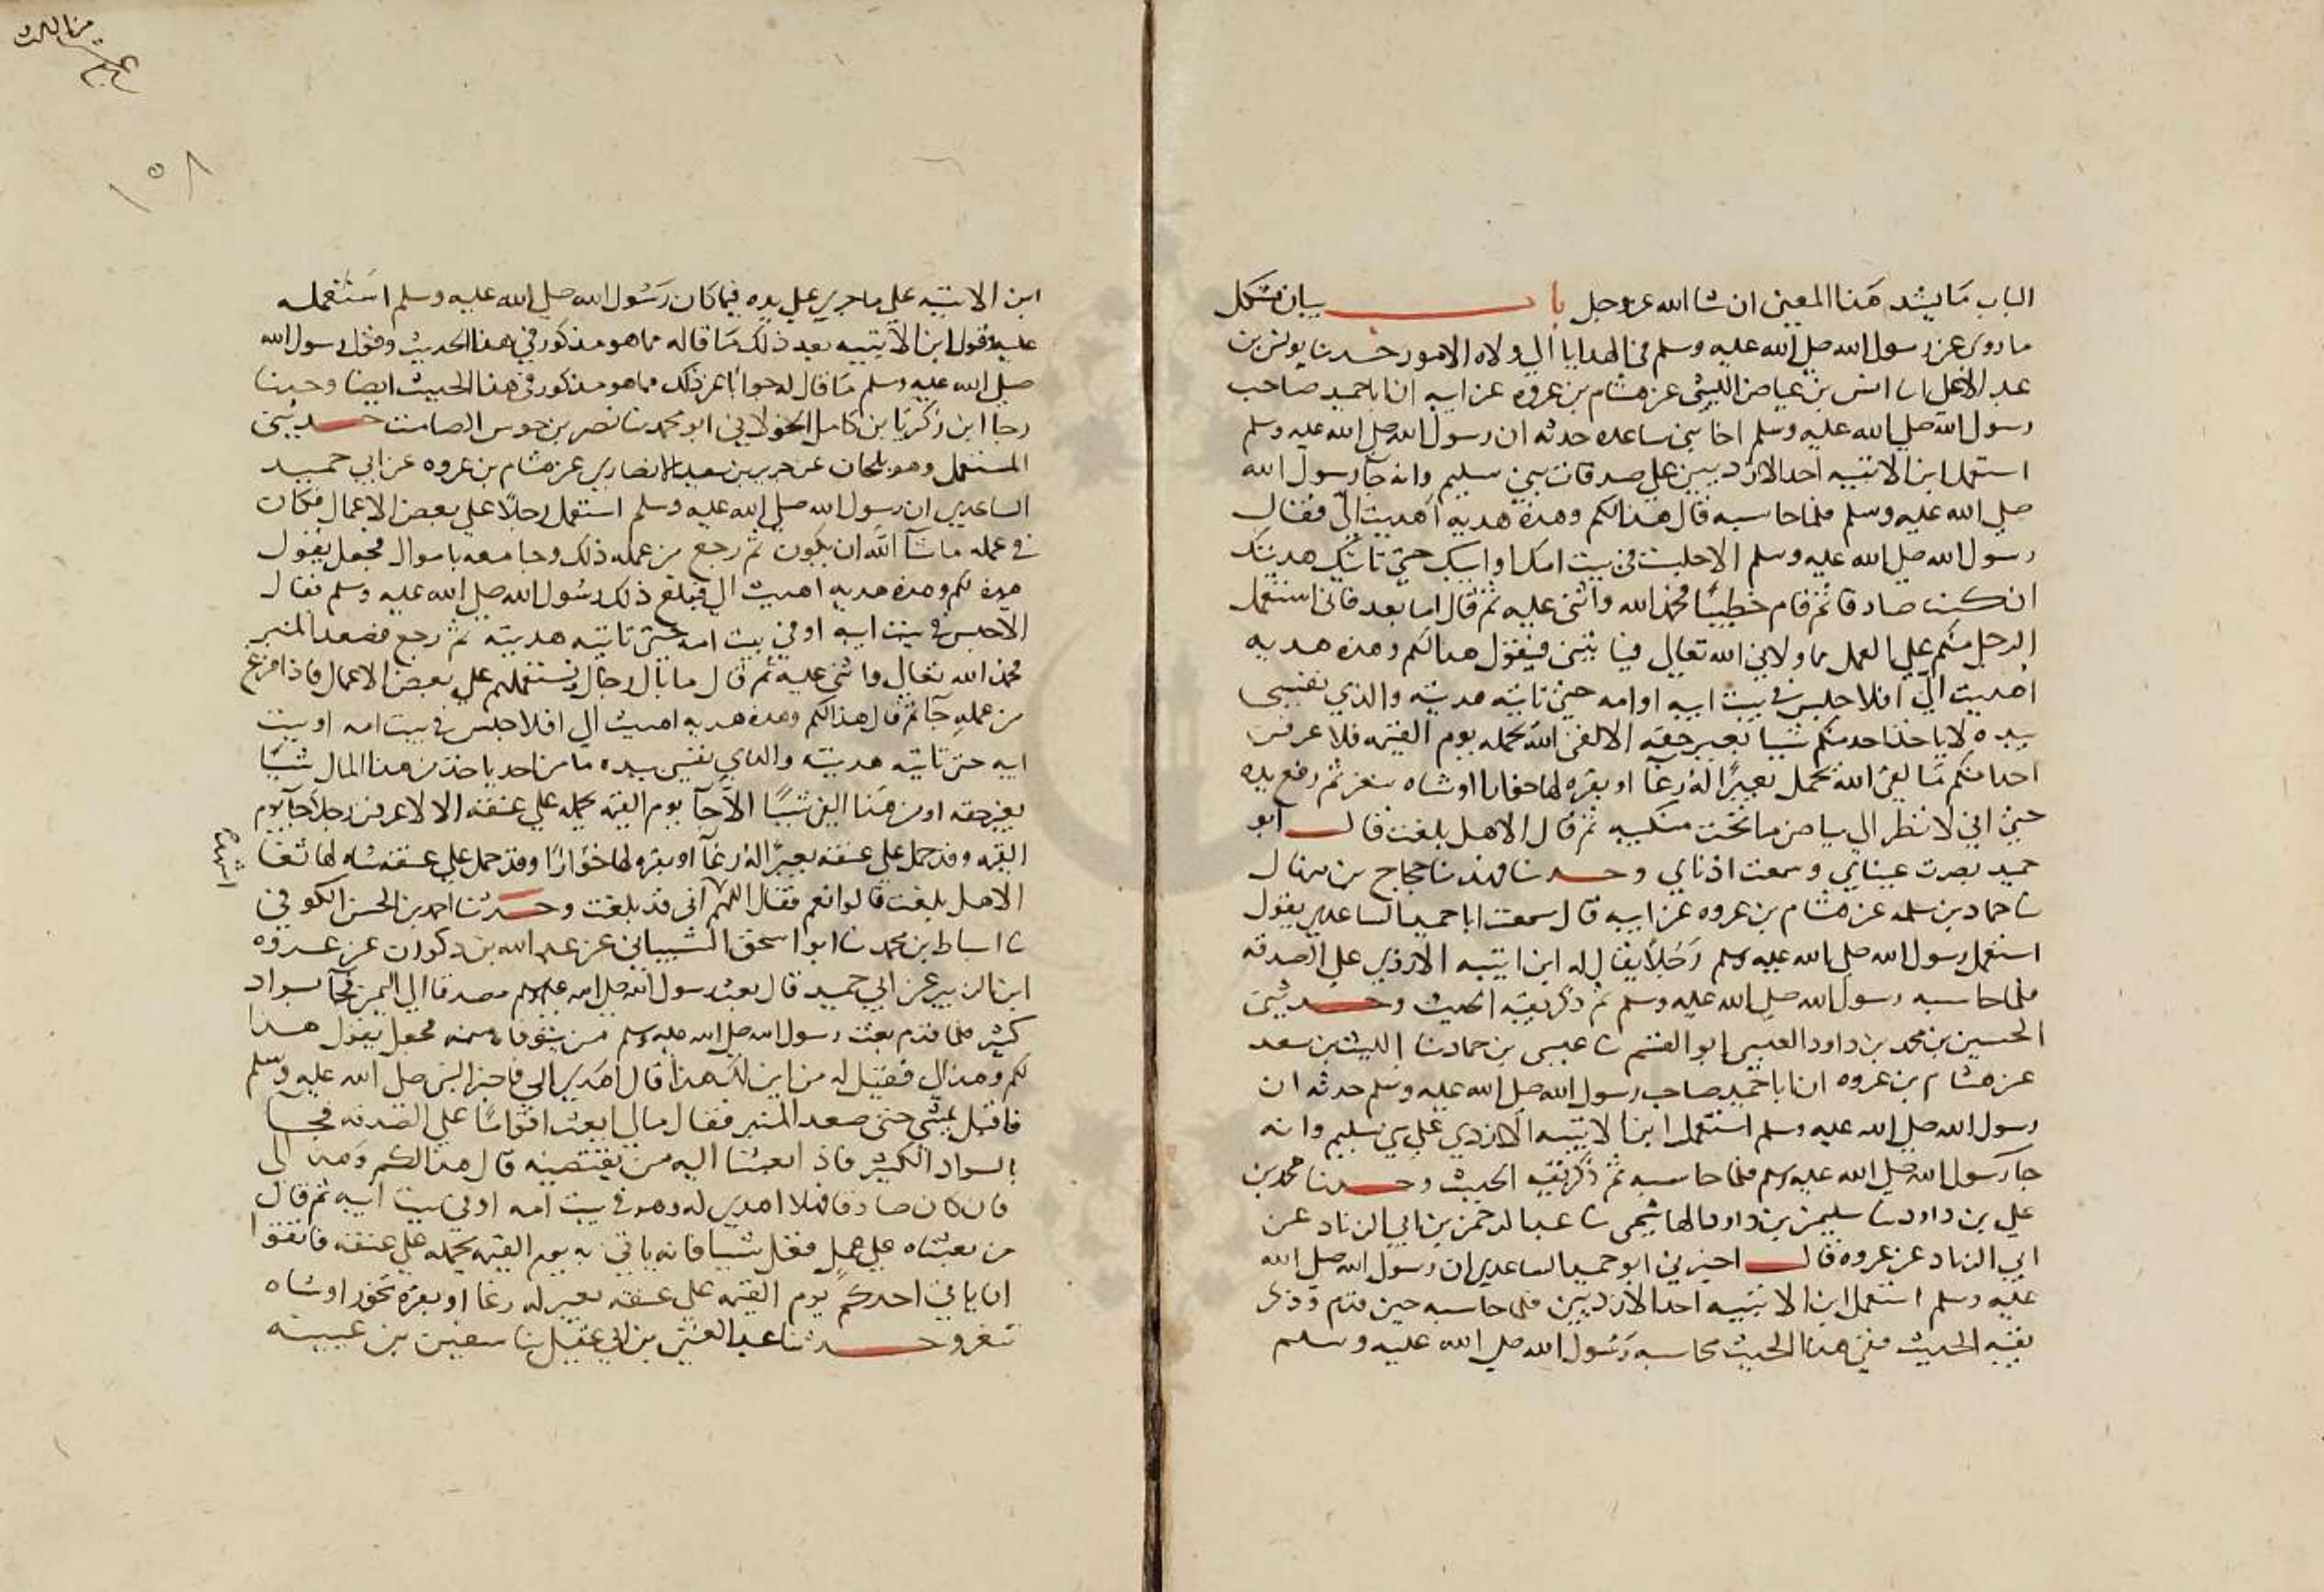 الباب ما يشد هذا المعنى ان شا الله عز وجل باب بيان مشكل
ما روى عن رسول الله صلى الله عليه وسلم في الهدايا الى ولاه الامور حدثنا يونس بن
عبد الاعلى انا انس بن عياض الليثي عن هشام بن عروه عن ابيه ان ابا حميد صاحب
رسول الله صلى الله عليه وسلم اخا بني ساعده حدثه ان رسول الله صلى الله عليه وسلم
استعمل ابن الاتبيه احد الازديين على صدقات بني سليم وانه جآ رسول الله
صلى الله عليه وسلم فلما حاسبه قال هذا لكم وهذه هديه اهديت الىّ فقال
رسول الله صلى الله عليه وسلم الا جلست في بيت امك او ابيك حتى تاتيك هديتك
ان كنت صادقا ثم قام خطيبًا فحمد الله واثنى عليه ثم قال اما بعد فاني استعمل
الرجل منكم على العمل مما ولاني الله تعالى فياتيني فيقول هذا لكم وهذه هديه
اهديت الىّ افلا جلس في بيت ابيه او امه حتى تاتيه هديته والذي نفسي
بيده لا ياخذ احد منكم شيا بغير حقه الا لقى الله يحمله يوم القيمه فلا عرفن
احدا منكم ما لقى الله يحمل بعيرًا له رغآ او بقره لها خوار او شاه تيعر ثم رفع يده
حتى اني لانظر الى بياض ما تحت منكبيه ثم قال الا هل بلغت قال ابو
حميد بصرت عيناي وسمعت اذناي وحدثنا فهد نا حجاج بن منهال
نا حماد بن سلمه عن هشام بن عروه عن ابيه قال سمعت ابا حميد الساعدي يقول
استعمل رسول الله صلى الله عليه وسلم رَجُلاً يقال له ابن اتبيه الازدي على الصدقه
فلما حاسبه رسول الله صلى الله عليه وسلم ثم ذكر بقيه الحديث وحدثني
الحسين بن محمد بن داود العبسي ابو القسم نا عيسى بن حماد نا الليث بن سعد
عن هشام بن عروه ان ابا حميد صاحب رسول الله صلى الله عليه وسلم حدثه ان
رسول الله صلى الله عليه وسلم استعمل ابن الاتبيه الازدي على بني سليم وانه
جآ رسول الله صلى الله عليه وسلم فلما حاسبه ثم ذكر بقيه الحديث وحدثنا محمد بن
علي بن داود نا سليمن بن داود الهاشمي نا عبد الرحمن بن ابي الزناد عن
ابي الزناد عن عروه قال اخبرني ابو حميد الساعدي ان رسول الله صلى الله
عليه وسلم استعمل ابن الاتبيه احد الازديين فلما حاسبه حين قدم وذكر
بقيه الحديث ففي هذا الحديث محاسبه رَسُول الله صلى الله عليه وسلم
ابن الاتبيه على ما جرى على يده فيما كان رَسُول الله صلى الله عليه وسلم استعمله
عليه وقول ابن الاتبيه بعد ذلك ما قاله مما هو مذكور في هذا الحديث وقول رسول الله
صلى الله عليه وسلم ما قال له جوابا عن ذلك مما هو مذكور في هذا الحديث ايضا وحدثنا
رجا ابن زكريا بن كامل الخولاني ابو محمد نا نصر بن حوس الصامت حدثني
المستملي وهو بلحان عن جرير بن سعيد الانصاري عن هشام بن عروه عن ابي حميد
الساعدي ان رسول الله صلى الله عليه وسلم استعمل رجلاً على بعض الاعمال فكان
في عمله ما شآ الله ان يكون ثم رجع من عمله ذلك وجا معه باموال فجعل يقول
هذه لكم وهذه هديه اهديت الى فبلغ ذلك رسول الله صلى الله عليه وسلم فقال
الا جلس في بيت ابيه او في بيت امه حتى تاتيه هديته ثم رجع فصعد المنبر
فحمد الله تعالى واثنى عليه ثم قال ما بال رجال نستعملهم على بعض الاعمال فاذا فرغ
من عمله جآ ثم قال هذا لكم وهذه هديه اهديت الى افلا جلس في بيت امه او بيت
ابيه حتى تاتيه هديته والذي نفسي بيده ما من احد ياخذ من هذا المال شيئا
بغير حقه او من هذا الفي شيئا الا جآ يوم القيمه يحمله على عنقه الا لا عرفن رجلاً جآ يوم
القيمه وقد حمل على عنقه بعيرًا له رغآ او بقره لها خوارًا وقد حمل على عنقه شاه لها ثغا
الا هل بلغت قالوا نعم فقال اللهم اني قد بلغت وحدثنا احمد بن الحسن الكوفي
نا اسباط بن محمد نا ابو اسحق الشيباني عن عبد الله بن ذكوان عن عروه
ابن الزبير عن ابي حميد قال بعث رسول الله صلى الله عليه وسلم مصدقا الى اليمن فجآ بسواد
كثير فلما قدم بعث رسول الله صلى الله عليه وسلم من يتوفاه منه فجعل يقول هذا
لكم وهذا لي فقيل له من اين لك هذا قال اهدي الي فاخبر النبي صلى الله عليه وسلم
فاقبل يمشي حتى صعد المنبر فقال مالي ابعث اقوامًا على الصدقه فيجيا
بالسواد الكثير فاذا بعثنا اليه من يقتضيه قال هذا لكم وهذا لي
فان كان صادقا فهلا اهدي له وهو في بيت امه او في بيت ابيه ثم قال
من بعثناه على عمل فغل شيا فانه ياتي به يوم القيمه يحمله على عنقه فاتقوا
ان ياتي احدكم يوم القيمه على عنقه بعير له رغا او بقره تخور او شاه
تثغو وحدثنا عبد الغني بن ابي عقيل نا سفين بن عيينه
١٥٨